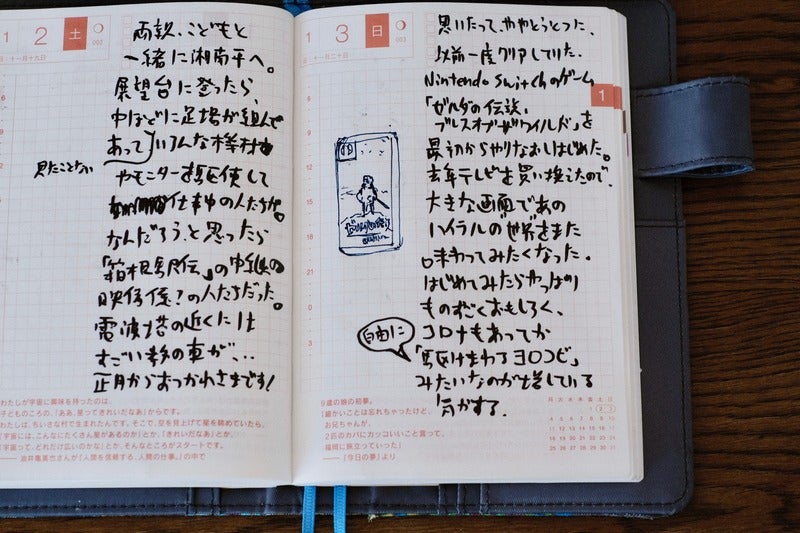 1 2 土
十一月十九日
002
両親、こどもと
一緒に湘南平へ。
展望台に登ったら、
中ほどに足場が組んで
あって、いろんな機材
見たことない
やモニターを駆使して
仕事中の人たちが。
なんだろう、と思ったら
「箱根駅伝」の中継の
映像係?の人たちだった。
電波塔の近くには
すごい数の車が、、、
正月からおつかれさまです!
わたしが宇宙に興味を持ったのは、
子どものころの、「ああ、星ってきれいだなあ」からです。
わたしは、ちいさな村で生まれたんです。そこで、空を見上げて星を眺めていたら、
「宇宙には、こんなにたくさん星があるのか」とか、「きれいだなあ」とか、
「宇宙って、どれだけ広いのかな」とか、そんなところがスタートです。
――油井亀美也さんが『人間を信頼する、人間の仕事。』の中で
1 3 日
十一月二十日
003
思いたって、ややとうとつだ、
以前一度クリアしていた、
Nintendo Switchのゲーム
「ゼルダの伝説、
ブレスオブザワイルド」を
最初からやりなおしはじめた。
去年テレビを買い換えたので、
大きな画面であの
ハイラルの世界をまた
味わってみたくなった。
はじめてみたらやっぱり
ものすごくおもしろく、
コロナもあってか
自由に
「駆けまわるヨロコビ」
みたいなのが増している
気がする。
1
9歳の娘の初夢。
「細かいことは忘れちゃったけど、
お兄ちゃんが、
2匹のカバにカッコいいこと言って、
福岡に旅立っていった」
――『今日の夢』より
月 火 水 木 金 土 日
1 2 3
4 5 6 7 8 9 10
11 12 13 14 15 16 17
18 19 20 21 22 23 24
25 26 27 28 29 30 31